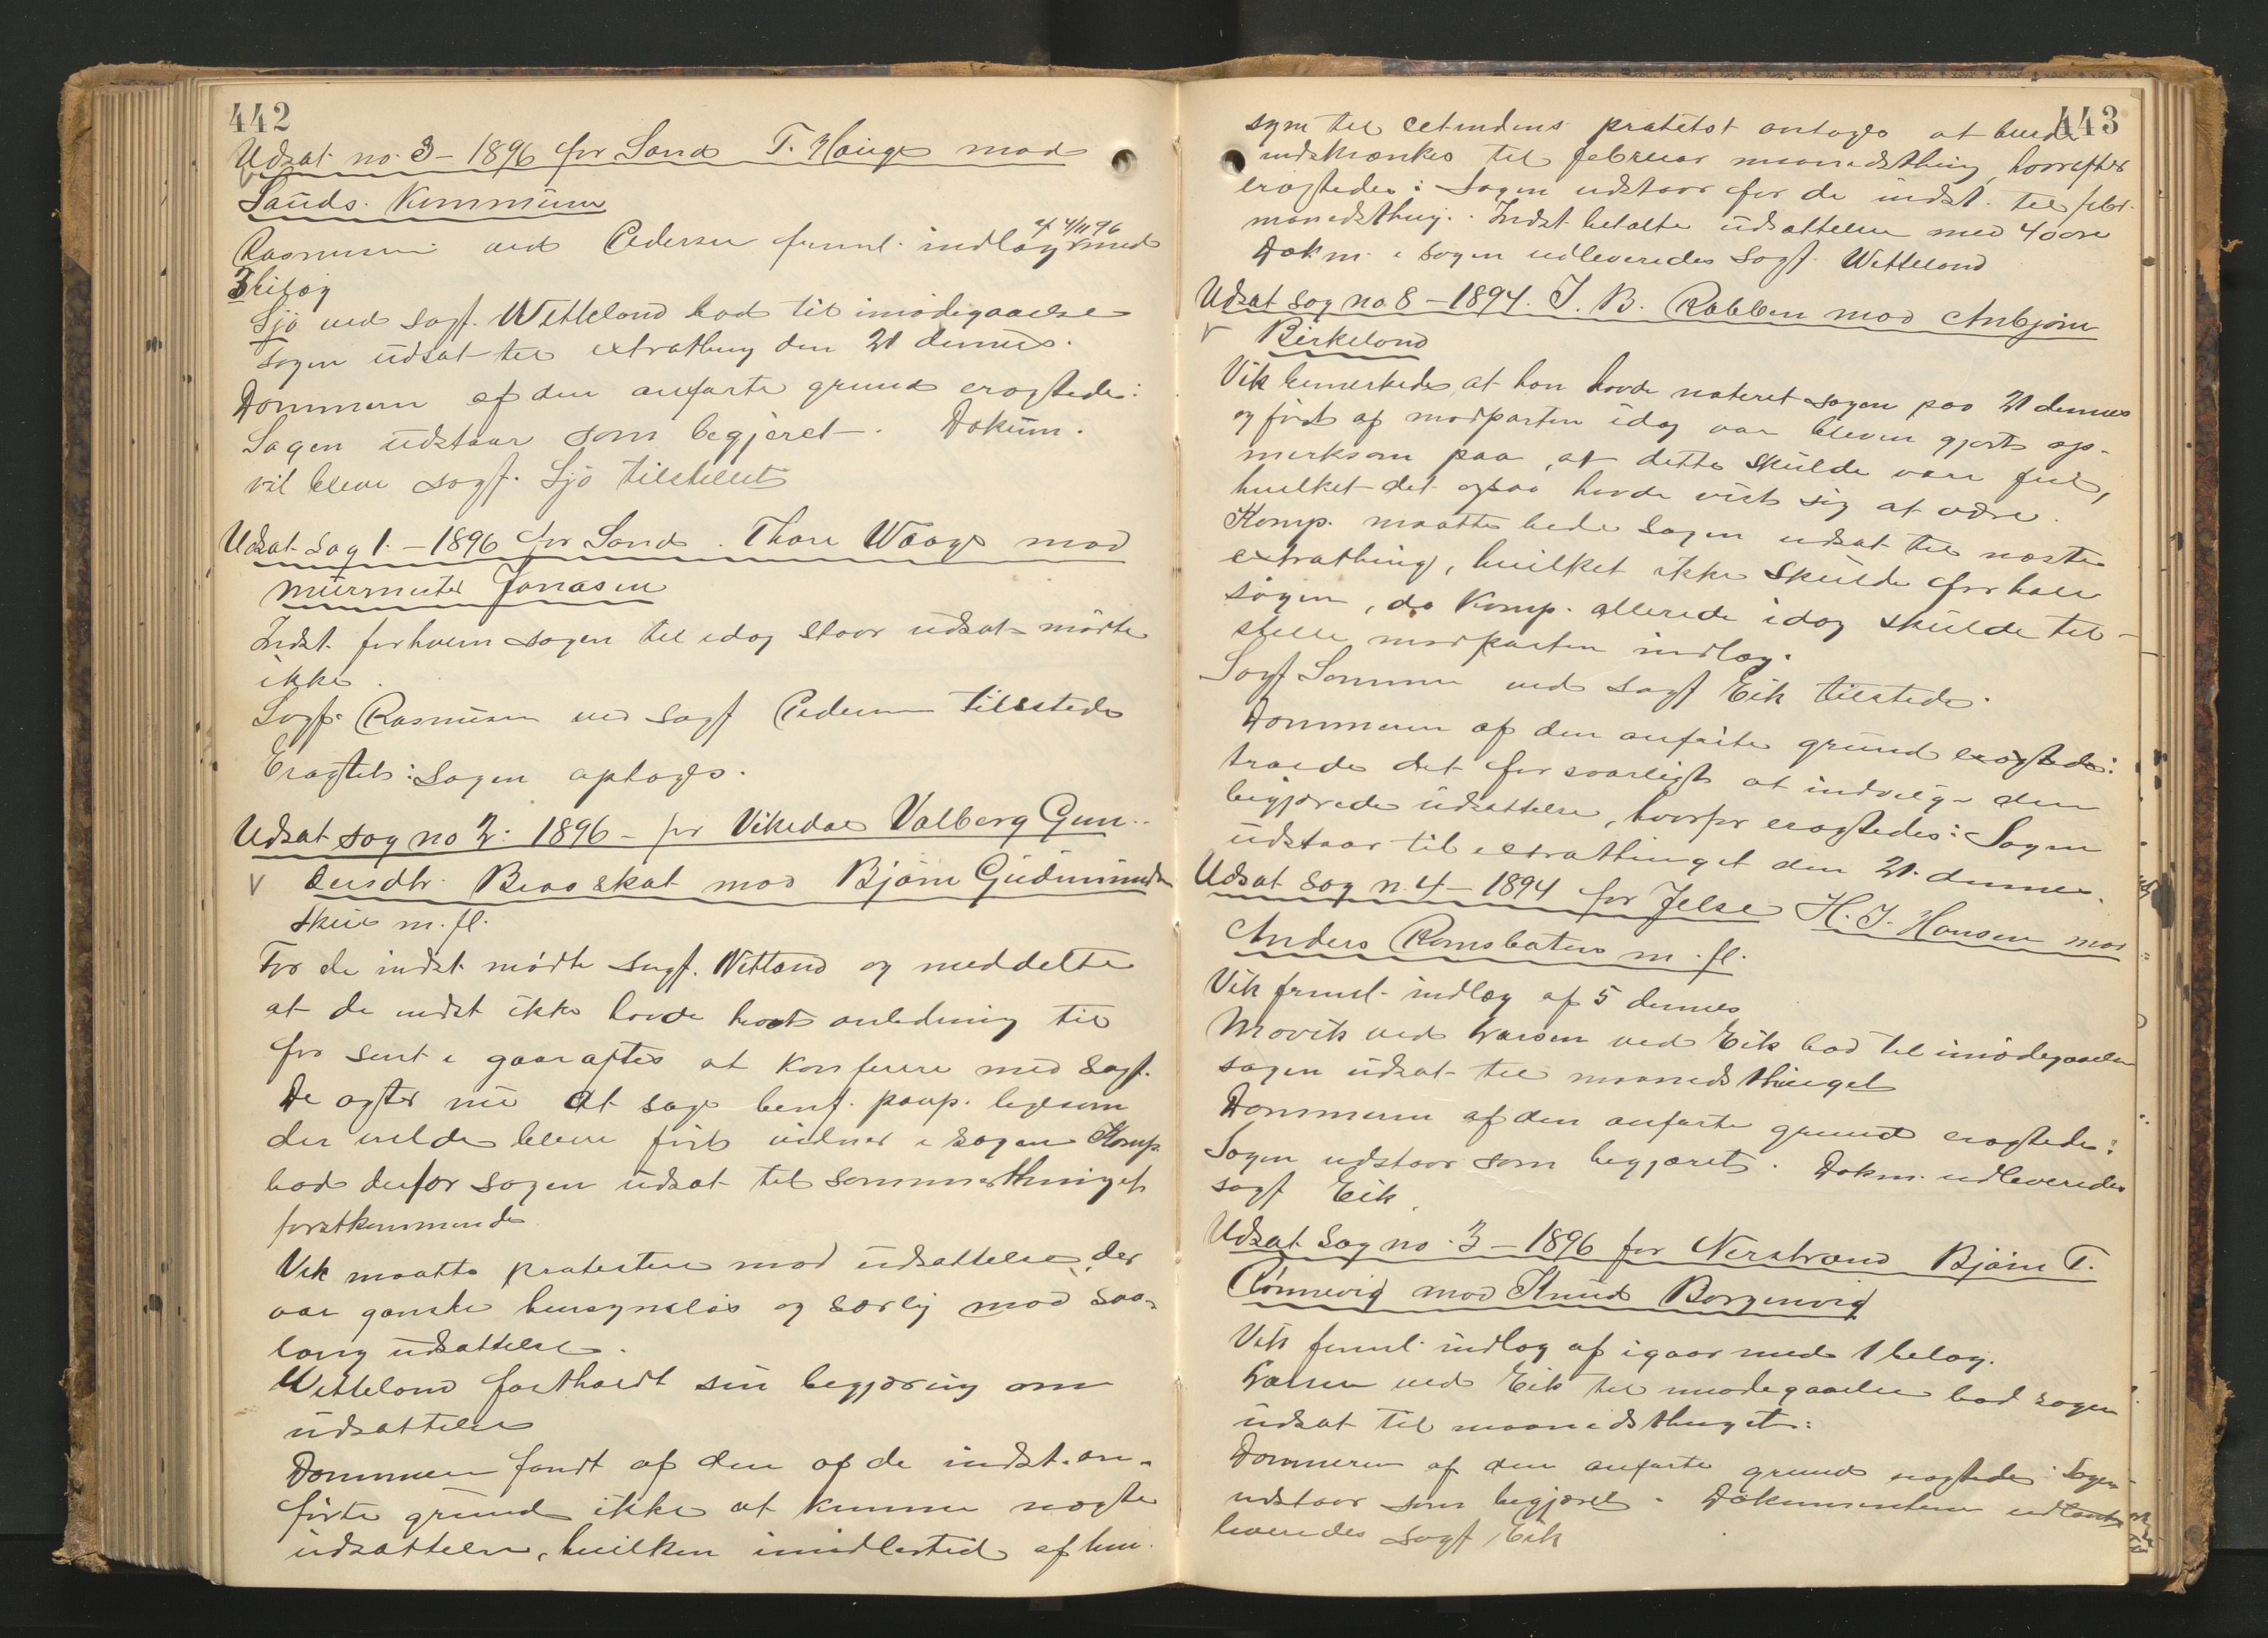 442
Udsat no. 3 - 1896 for Sand T. Hauge mod
Sands Kommune
Rasmusen ved Pedersen freml. indlæg af 4/11 96 med
3 bilag
Sjø ved sagf. Wetteland bad til imødegaaelse
sagen udsat til extrathing den 21 dennes.
Dommeren af den anførte grund eragtede:
Sagen udstaar som begjæret. Dokum.
vil blive sagf. Sjø tilstillet
Udsat sag 1. - 1896 for Sand. Thore Waage mod
murmester Jonasen
Indst. forhvem sagen til idag staar udsat mødte
ikke.
Sagf. Rasmusen ved sagf Pedersen tilstede
Eragtet: Sagen optoges.
Udsat sag no 2: 1896 - for Vikedal Valborg Gun-
dersdtr. Braaskat mod Bjørn Gudmunds
skeie m. fl.
For de indst. mødte sagf. Wetland og meddelte
at de indst ikke havde havt anledning til
før sent i gaaraftes at konferere med sagf.
De agter nu at søge benf. prov. ligesom
der vilde blive ført vidner i sagen Komp.
bad derfor sagen udsat til sommerthinget
førstkommende
Vik maatte protestere mod udsættelse, der
var ganske hensynsløs og særlig mod saa
lang udsættelse.
Wetteland fastholdt sin begjæring om
udsættelse
Dommeren fandt af den af de indst. an-
førte grund ikke at kunne nægte
udsættelse, hvilken imidlertid af hen-
443
syn til citindens protest antoges at burde
indskrænkes til februar maanedsthing, hvorefter
eragtedes: Sagen udstaar for de indst. til febr.
maanedsthing. Indst. betalte udsættelsen med 40 øre
Dokm. i sagen udleveredes Sagf. Wetteland
Udsat sag no 8 - 1894. J. B. Rabben mod Anbjørn
Birkeland
Vik bemerkede, at han havde noteret sagen paa 21 dennes
og først af modparten idag var bleven gjort op-
merksom paa, at dette skulde være feil,
hvilket det ogsaa havde vist sig at være.
Komp. maatte bede sagen udsat til næste
extrathing, hvilket ikke skulde forhale
sagen, da Komp. allerede idag skulde til-
stille modparten indlæg.
Sagf Sømme ved sagf Eik tilstede.
Dommeren af den anførte grund eragtede:
troede det forsvarligt at indvilge den
begjærede udsættelse, hvorfor eragtedes: Sagen
udstaar til extrathinget den 21. dennes.
Udsat sag n. 4 - 1894 for Jelse H. J. Hansen mod
Anders Ramsbaten m. fl.
Vik freml. indlæg af 5 dennes
Movik ved Larsen ved Eik bad til imødegaaelse
sagen udsat til maanedsthinget
Dommeren af den anførte grund eragtede:
Sagen udstaar som begjæret. Dokm. udleveredes
sagf Eik.
Udsat Sag no. 3 - 1896 for Nerstrand Bjørn T.
Rønnevig mod Knud Borgenvig
Vik freml. indlæg af igaar med 1 belag.
Larsen ved Eik til imødegaaelse bad sagen
udsat til maanedsthinget:
Dommeren af den anførte grund eragtede: Sagen
udstaar som begjæret. Dokumenterne ud
leveredes sagf Eik